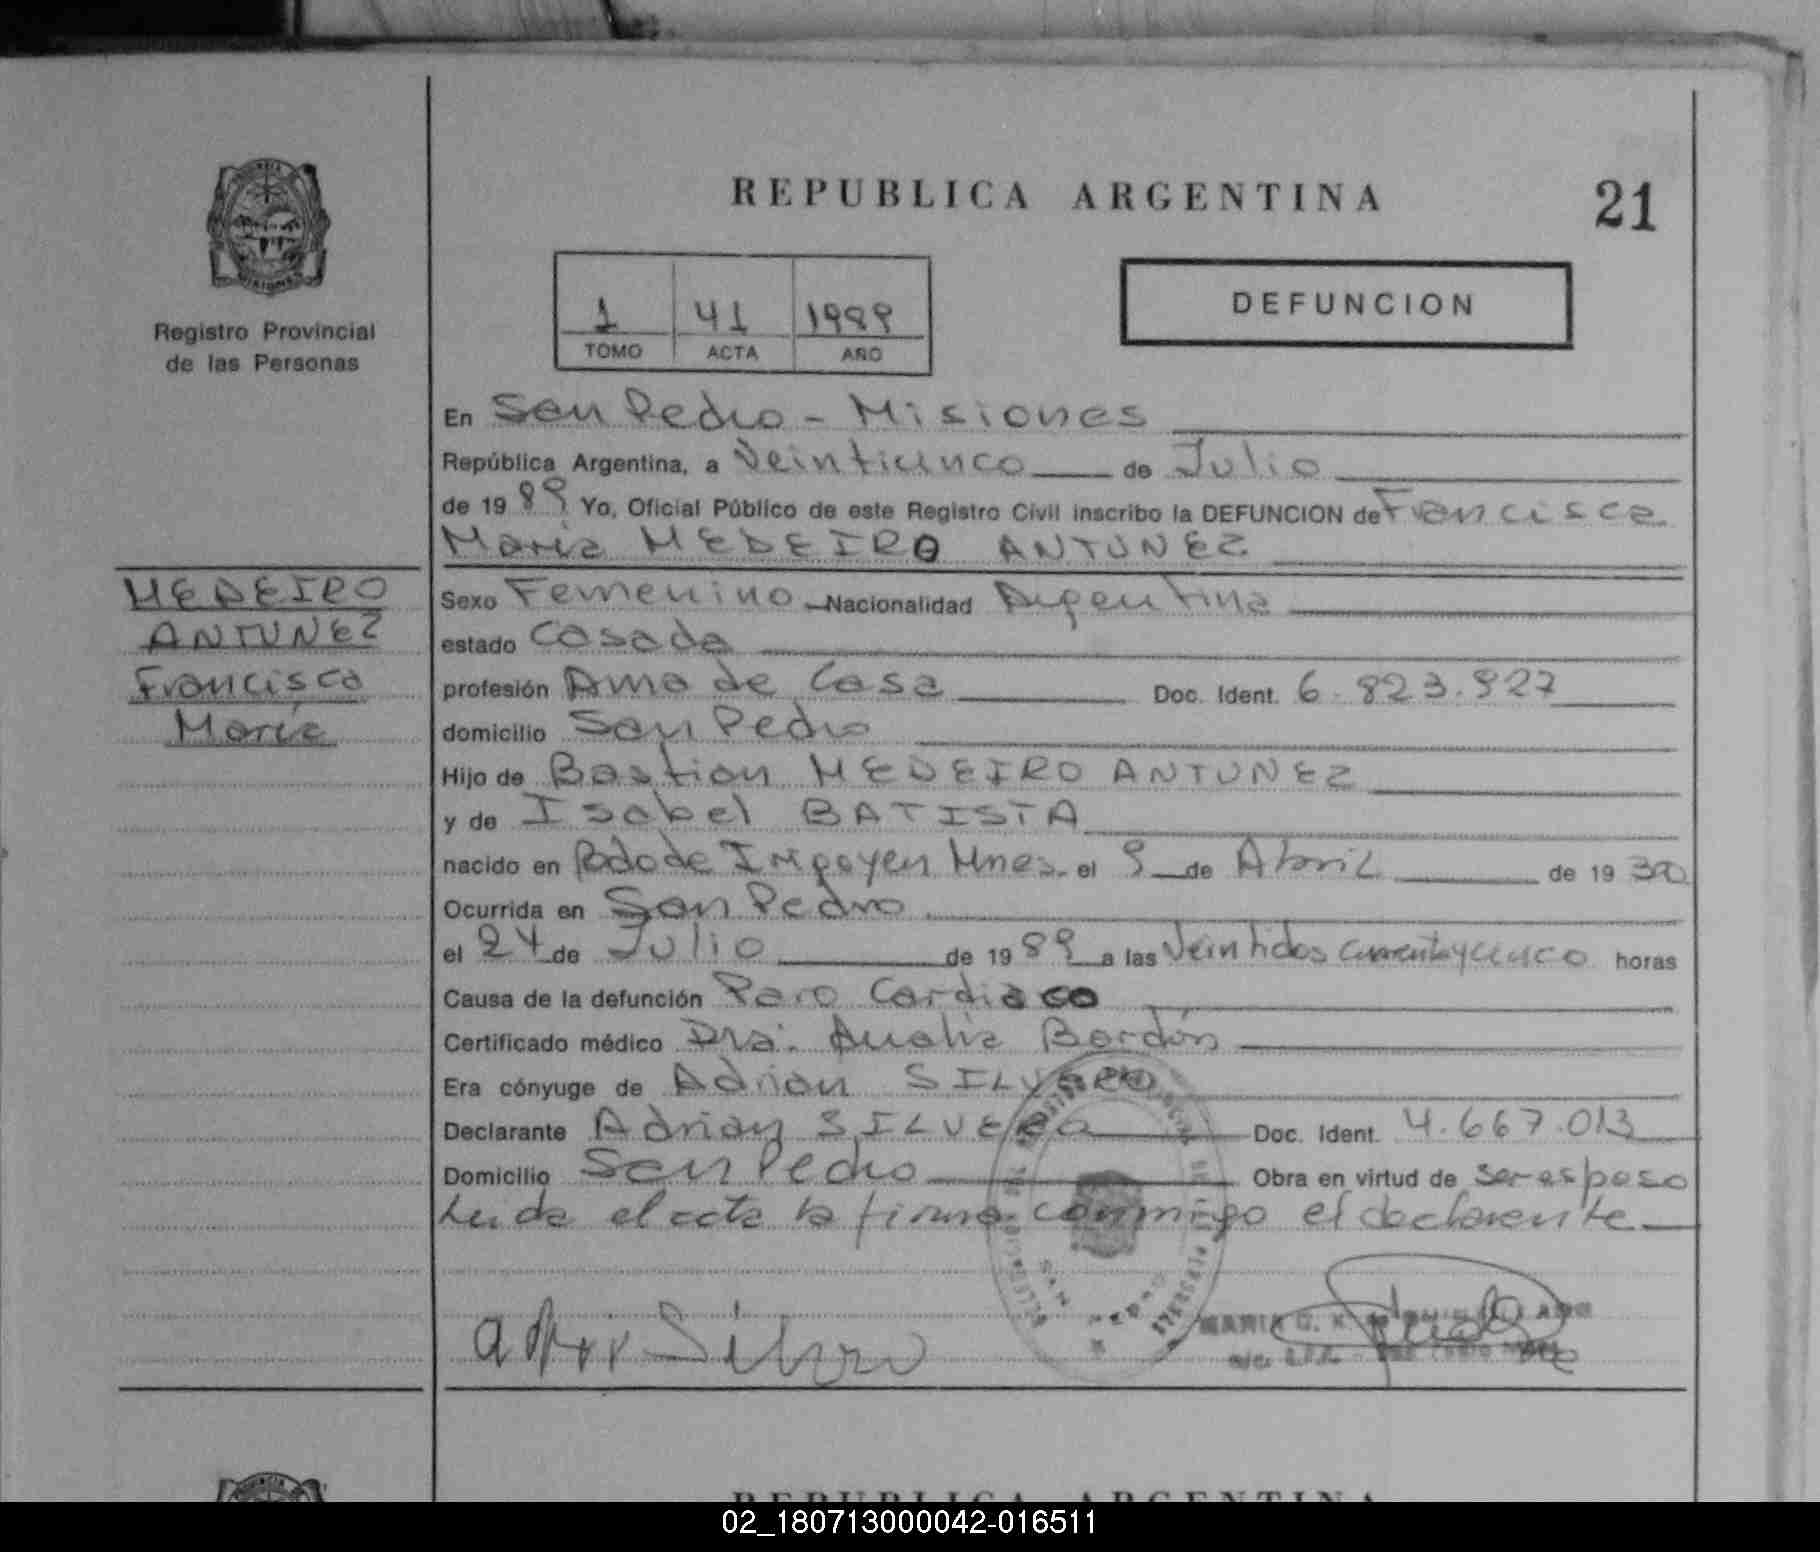 REPUBLICA ARGENTINA
21
Registro Provincial
de las Personas
1 41 1989
TOMO ACTA AÑO
DEFUNCION
En San Pedro - Misiones
República Argentina, a Veinticinco de Julio
de 19 89 Yo, Oficial Público de este Registro Civil inscribo la DEFUNCION de Francisca
María MEDEIRO ANTUNEZ
MEDEIRO
ANTUNEZ
Francisca
María
Sexo Femenino Nacionalidad Argentina
estado Casada
profesión Ama de Casa Doc. Ident. 6.823.927
domicilio San Pedro
Hijo de Bastian MEDEIRO ANTUNEZ
y de Isabel BATISTA
nacido en Mnes. el 9 de Abril de 19 30
Ocurrida en San Pedro
el 24 de Julio de 19 89 a las Veintidos cuarentaycinco horas
Causa de la defunción Paro Cardiaco
Certificado médico Dra. Analia Bordón
Era cónyuge de Adrian SILVERO
Declarante Adrian SILVERO Doc. Ident. 4.667.013
Domicilio San Pedro Obra en virtud de ser esposo
Leida el acta la firma conmigo el declarente
REPUBLICA ARGENTINA
02_180713000042-016511